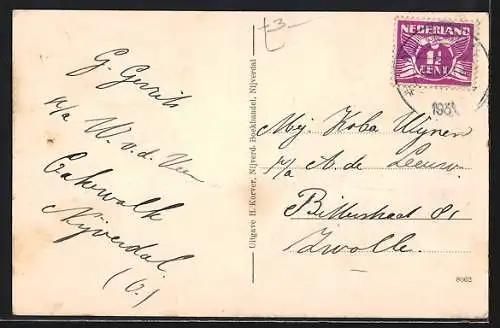 t 3-
G. Gerrits
p/a W. v. d. Veen
Cakewalk
Nijverdal.
(O.)
Uitgave H. Korver, Nijverd. Boekhandel, Nijverdal
NEDERLAND
1½
CENT
193
Mej. Koba Wijnen
p/a A. de Leeuw.
Bitterstraat 81
Zwolle.
8662